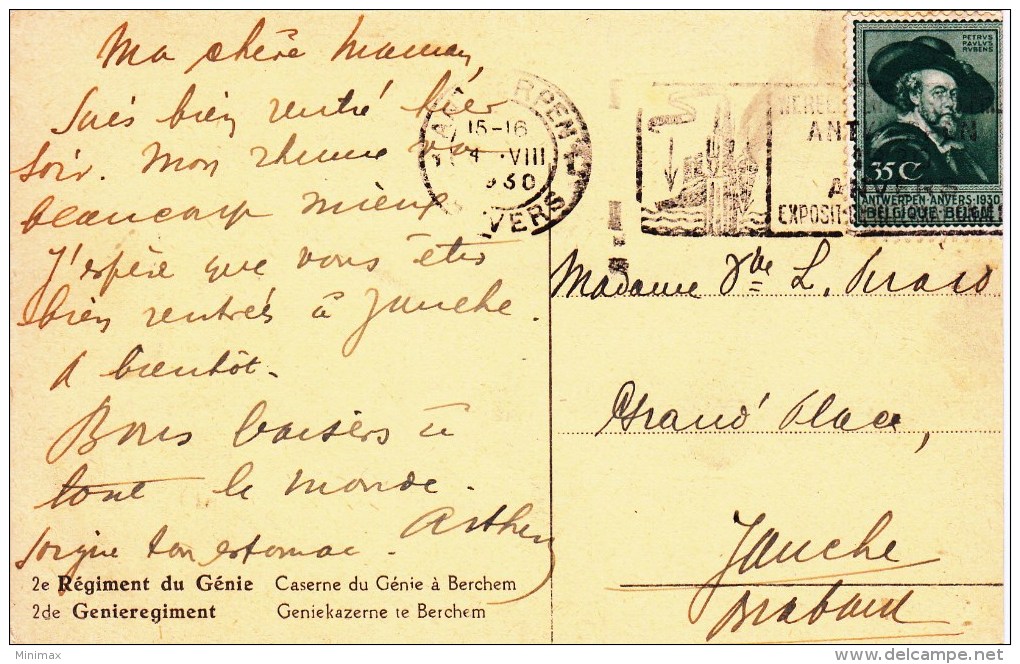 Ma chère Maman,
Suis bien rentré hier
soir. Mon rhume va
beaucoup mieux
J'espère que vous êtes
bien rentrés à Jauche.
A bientôt.
Bons baisers à
tout le monde.
Soigne ton estomac. Arthur
2e Régiment du Génie Caserne du Génie à Berchem
2de Genieregiment Geniekazerne te Berchem
15-16
VIII
1930
ANTWERPEN
ANVERS
EXPOSIT
PETRVS
PAVLVS
RVBENS
35 C
ANTWERPEN-ANVERS-1930
BELGIQUE-BELGIË
Madame Vve L.
Grand' Place,
Jauche
Brabant
Minimax
www.delcampe.net